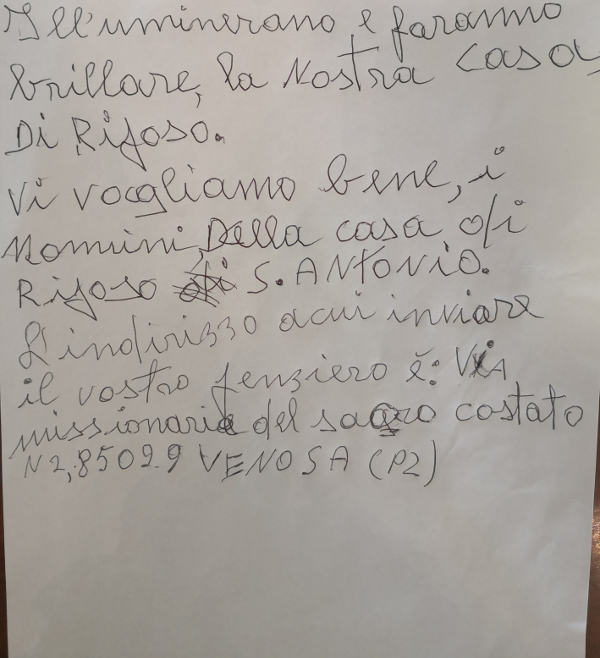 Ill'umineranno e faranno
brillare, la Nostra casa,
Di Riposo.
Vi vogliamo bene, i
Nonnini, Della casa di
Riposo S. ANTONIO.
L'indirizzo a cui inviare
il vostro pensiero è: VIA
missionarie del sagro costato
N2, 85029 VENOSA (PZ)